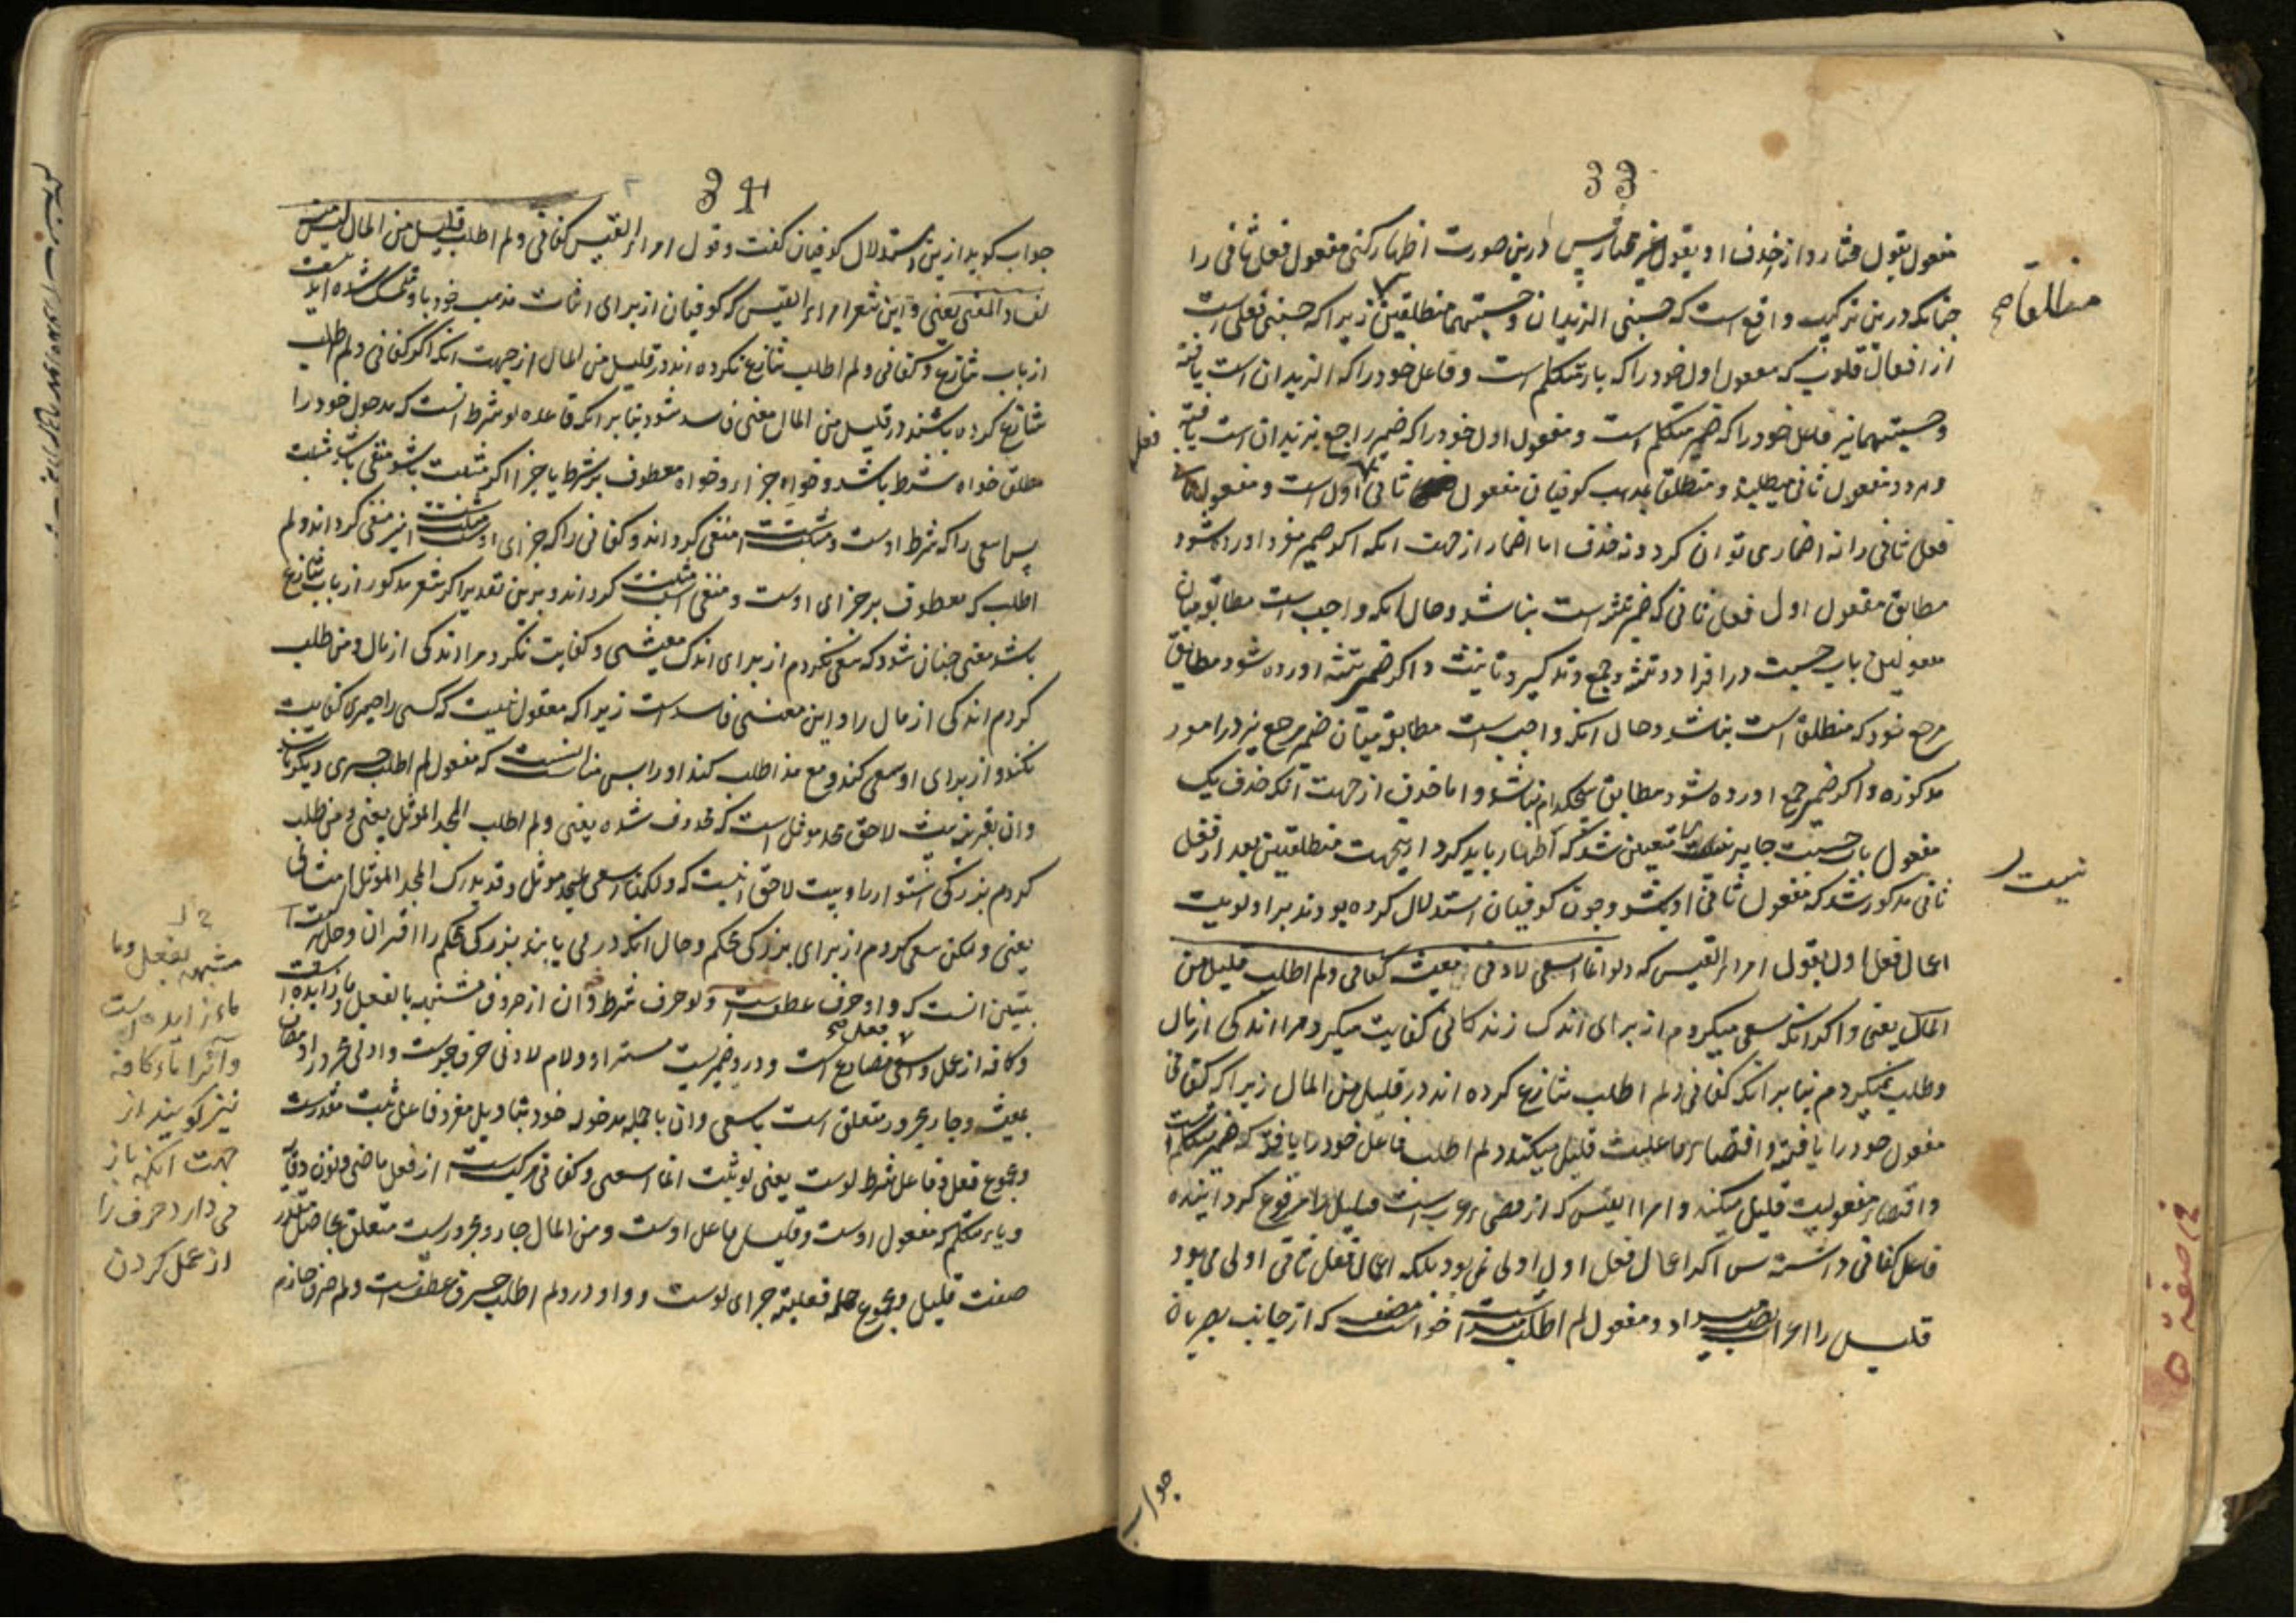 33
مفعول بقول مختار و از حذف او بقول غیر مختار پس درین صورت اظهار کنی مفعول فعل ثانی را
چنانکه درین ترکیب واقع است که حسبنی الزیدان و حسبتهما منطلقین زیرا که حسبنی فعلی است
از افعال قلوب که مفعول اول خود را که یاء متکلم است و فاعل خود را که الزیدان است یافته
و حسبتهما نیز فاعل خود را که ضمیر متکلم است و مفعول اول خود را که ضمیر راجع بزیدان است یافته
و هر دو مفعول ثانی میطلبند و منطلقا بمذهب کوفیان مفعول ثانی اول است و مفعول
فعل ثانی را نه اضماری توان کرد و نه حذف اما اضمار از جهت انکه اکر ضمیر مفرد اورده شود
مطابق مفعول اول فعل ثانی که ضمیر تثنیه است نباشد و حال انکه واجب است مطابقه میان
مفعولین باب حسبت در افراد و تثنیه و جمع و تذکیر و تانیث و اکر ضمیر تثنیه اورده شود مطابق
مرجع خود که منطلقا است نباشد و حال انکه واجب است مطابقه میان ضمیر و مرجع نیز در امور
مذکوره و اکر ضمیر جمع اورده شود مطابق هیچکدام نباشد و اما حذف از جهت انکه حذف یک
مفعول باب حسبت جایز نیست متعین شد که اظهار باید کرد ازینجهت منطلقین بعد از فعل
ثانی مذکور شد که مفعول ثانی او باشد و چون کوفیان استدلال کرده بودند بر اولویت
اعمال فعل اول بقول امرء القیس که ولو انما اسعی لادنی معیشة کفانی ولم اطلب قلیل من
المال یعنی و اکر انکه سعی میکردم از برای اندک زندکانی کفایت میکرد مرا اندکی از مال
و طلب نمیکردم بنابر انکه کفانی و لم اطلب تنازع کرده اند در قلیل من المال زیرا که کفانی
مفعول خود را یافته و اقتضاء فاعلیت قلیل میکند و لم اطلب فاعل خود را یافته که ضمیر متکلم است
و اقتضاء مفعولیت قلیل میکند و امرء القیس که از فصحاء عرب است قلیل را مرفوع کردانیده
فاعل کفانی داشته پس اکر اعمال فعل اول اولی نمی بود بلکه اعمال فعل ثانی اولی می بود
قلیل را اعراب نصب میداد و مفعول لم اطلب میداشت مصنف خواست که از جانب بصریان
منطلقا صح
فعل
نیست
جواب
34
جواب کوید ازین استدلال کوفیان کفت و قول امرء القیس کفانی و لم اطلب قلیل من المال لیس منه
لفساد المعنی یعنی و این شعر امرء القیس که کوفیان از برای اثبات مذهب خود باو متمسک شده اند نیست
از باب تنازع و کفانی و لم اطلب تنازع نکرده اند در قلیل من المال از جهت انکه اکر کفانی و لم اطلب
تنازع کرده باشند در قلیل من المال معنی فاسد شود بنابر انکه قاعده لو شرط انست که مدخول خود را
مطلق خواه شرط باشد و خواه جزا و خواه معطوف بر شرط یا جزا اکر مثبت باشد منفی باشد مثبت
پس اسعی را که شرط اوست و مثبت است منفی کرداند و کفانی را که جزای اوست و مثبت است نیز منفی کرداند و لم
اطلب که معطوف بر جزای اوست و منفی است مثبت کرداند و برین تقدیر اکر شعر مذکور از باب تنازع
باشد معنی چنان شود که سعی نکردم از برای اندک معیشتی و کفایت نکرد مرا اندکی از مال و من طلب
کردم اندکی از مال را و این معنی فاسد است زیرا که معقول نیست که کسی را چیزی کفایت
نکند و از برای او سعی کند و مع هذا طلب کند او را پس مناسب انست که مفعول لم اطلب چیزی دیکر باشد
و ان بقرینه بیت لاحق مجد موثل است که محذوف شده یعنی و لم اطلب المجد الموثل یعنی و من طلب
کردم بزرکی استوار را و بیت لاحق اینست که ولکنما اسعی لمجد موثل و قد یدرک المجد الموثل امثالی
یعنی و لکن سعی کردم از برای بزرکی محکم و حال انکه در می یابند بزرکی محکم را اقران و حل
بیتین انست که واو حرف عطف است و لو حرف شرط و ان از حروف مشبهه بالفعل و ما زایده است
و کافه از عمل و اسعی فعل مضارع است و درو ضمیریست مستتر او و لام لادنی حرف جرست و ادنی مجرور او مضاف
بمعیشة و جار مجرور متعلق است باسعی و ان با جمله مدخوله خود بتاویل مفرد فاعل ثبت مقدرست
و مجموع فعل و فاعل شرط لوست یعنی لو ثبت انما اسعی و کفانی مرکبست از فعل ماضی و نون وقایه
و یاء متکلم که مفعول اوست و قلیل فاعل اوست و من المال جار و مجرورست متعلق بحاصل مقدر
صفت قلیل و مجموع جمله فعلیه جزای لوست و واو در و لم اطلب حرف عطف است و لم حرف جازم
مشبهه بفعل و ما
ماء زایده است
و آنرا ماء کافه
نیز کویند از
جهت انکه باز
می دارد حرف را
از عمل کردن